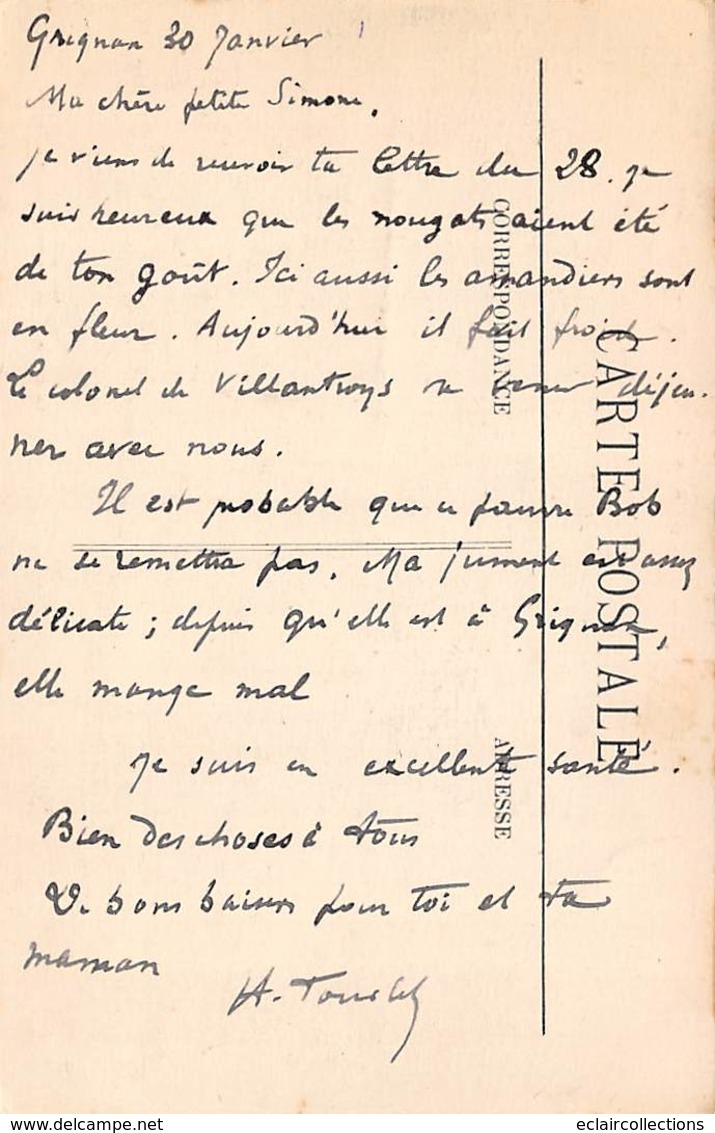 Grignan 30 Janvier
Ma chère petite Simone,
je viens de recevoir ta lettre du 28. je
suis heureux que les nougats aient été
de ton goût. Ici aussi les amandiers sont
en fleur. Aujourd'hui il fait froid.
Le colonel de Villantroys va venir déjeu-
ner avec nous.
Il est probable que ce pauvre Bob
ne se remettra pas. Ma jument est assez
délicate ; depuis qu'elle est à Grignan,
elle mange mal
je suis en excellente santé.
Bien des choses à tous
De bons baisers pour toi et ta
maman
CARTE POSTALE
CORRESPONDANCE
ADRESSE
eclaircollections